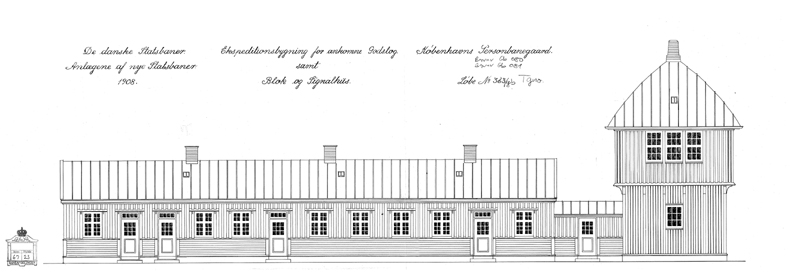 De danske Statsbaner.
Anlægene af nye Statsbaner
1908.
Ekspeditionsbygning for ankomne Godstog
samt
Blok og Signalhus.
Københavns Personbanegaard.
Løbe Nº